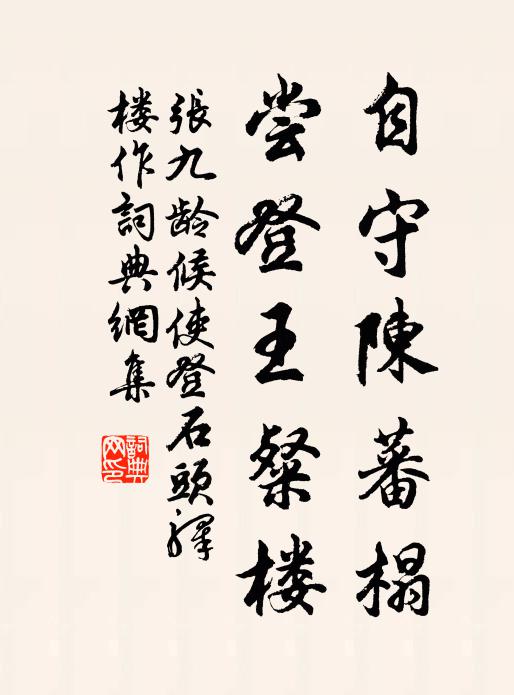 自守陳蕃榻
尝登王粲楼
張九龄候使登石頭驛
楼作詞典網集
詞典网印